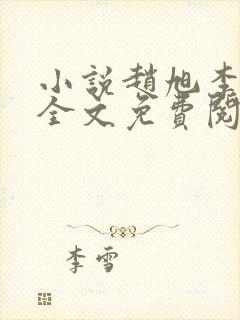 小說趙旭李
全文免費閱
李雪